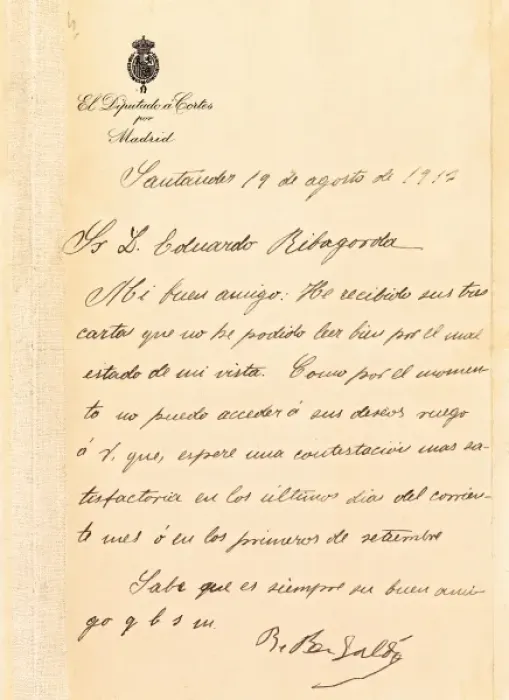 El Diputado á Cortes
por
Madrid
Santander 19 de agosto de 1912
Sr D. Eduardo Ribagorda
Mi buen amigo: He recibido sus tres
cartas que no he podido leer bien por el mal
estado de mi vista. Como por el momen-
to no puedo acceder á sus deseos ruego
á V. que, espere una contestación mas sa-
tisfactoria en los últimos dias del corrien-
te mes ó en los primeros de setiembre
Sabe que es siempre su buen ami-
go q b s m
B. Perez Galdós